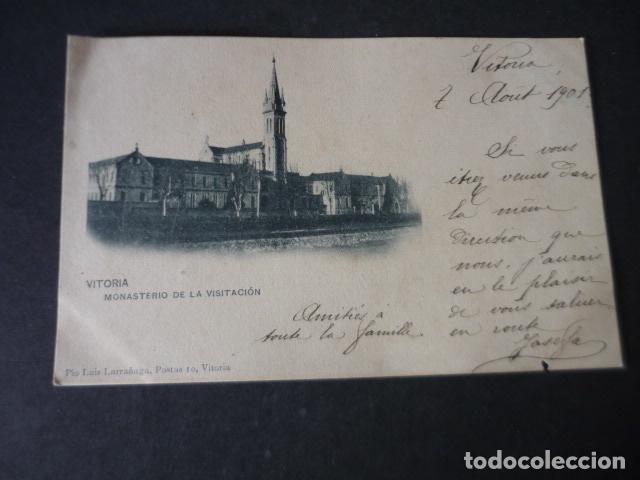 Vitoria,
7 Août 1901.
Si vous
étiez venues dans
la même
direction que
nous, j'aurais
eu le plaisir
de vous saluer
en route
Josefa
Amitiés à
toute la famille.
VITORIA
MONASTERIO DE LA VISITACIÓN
Pío Luis Larrañaga, Postas 10, Vitoria
todocoleccion.net